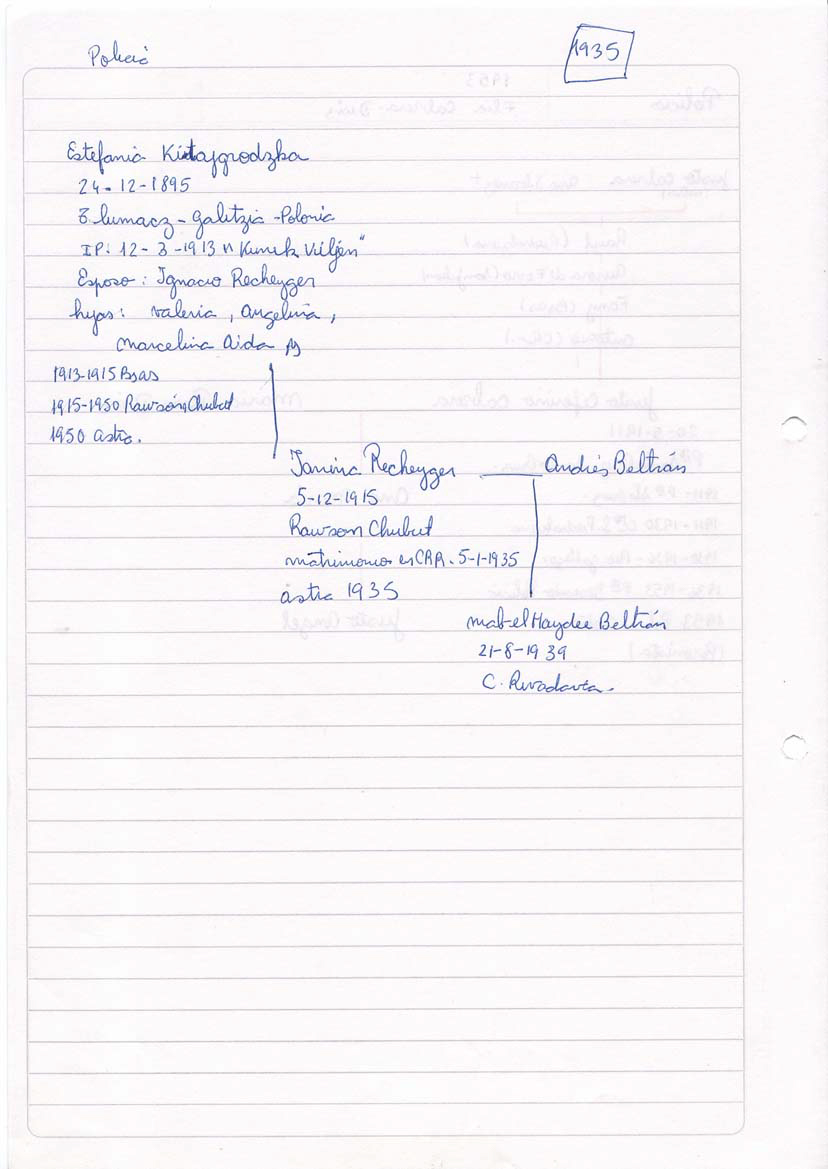 Policia
1935
Estefania Kistajgrodzka
24-12-1895
Tlumacz - Galitzia - Polonia
IP: 12-3-1913 "
Esposo: Ignacio Recheyger
hijas: Valeria, Angelina,
Marcelina Aida
1913-1915 Bsas
1915-1950 Rawson, Chubut
1950 Astra.
Janina Recheyger —— Andrés Beltrán
5-12-1915
Rawson Chubut
matrimonio en CRR. 5-1-1935
astra 1935
Mabel Haydee Beltrán
21-8-1939
C. Rivadavia.